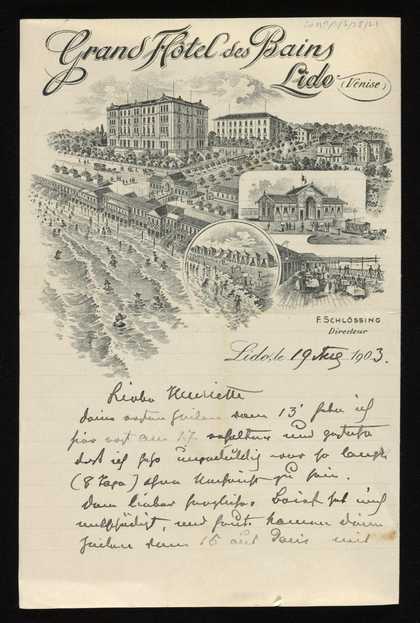 Grand Hôtel des Bains
Lido
(Venise)
F. SCHLÖSSING
Directeur
Lido, le 19 Aug 1903.
Liebe Henriette
Deine ersten Zeilen vom 13' habe ich
hier erst am 17. erhalten und
dass ich sehr ungeduldig war so lange
(8 Tage) ohne Nachricht zu sein.
Dein lieber Brief hat mich
und heute kamen Deine
Zeilen vom 16 aus Paris mit